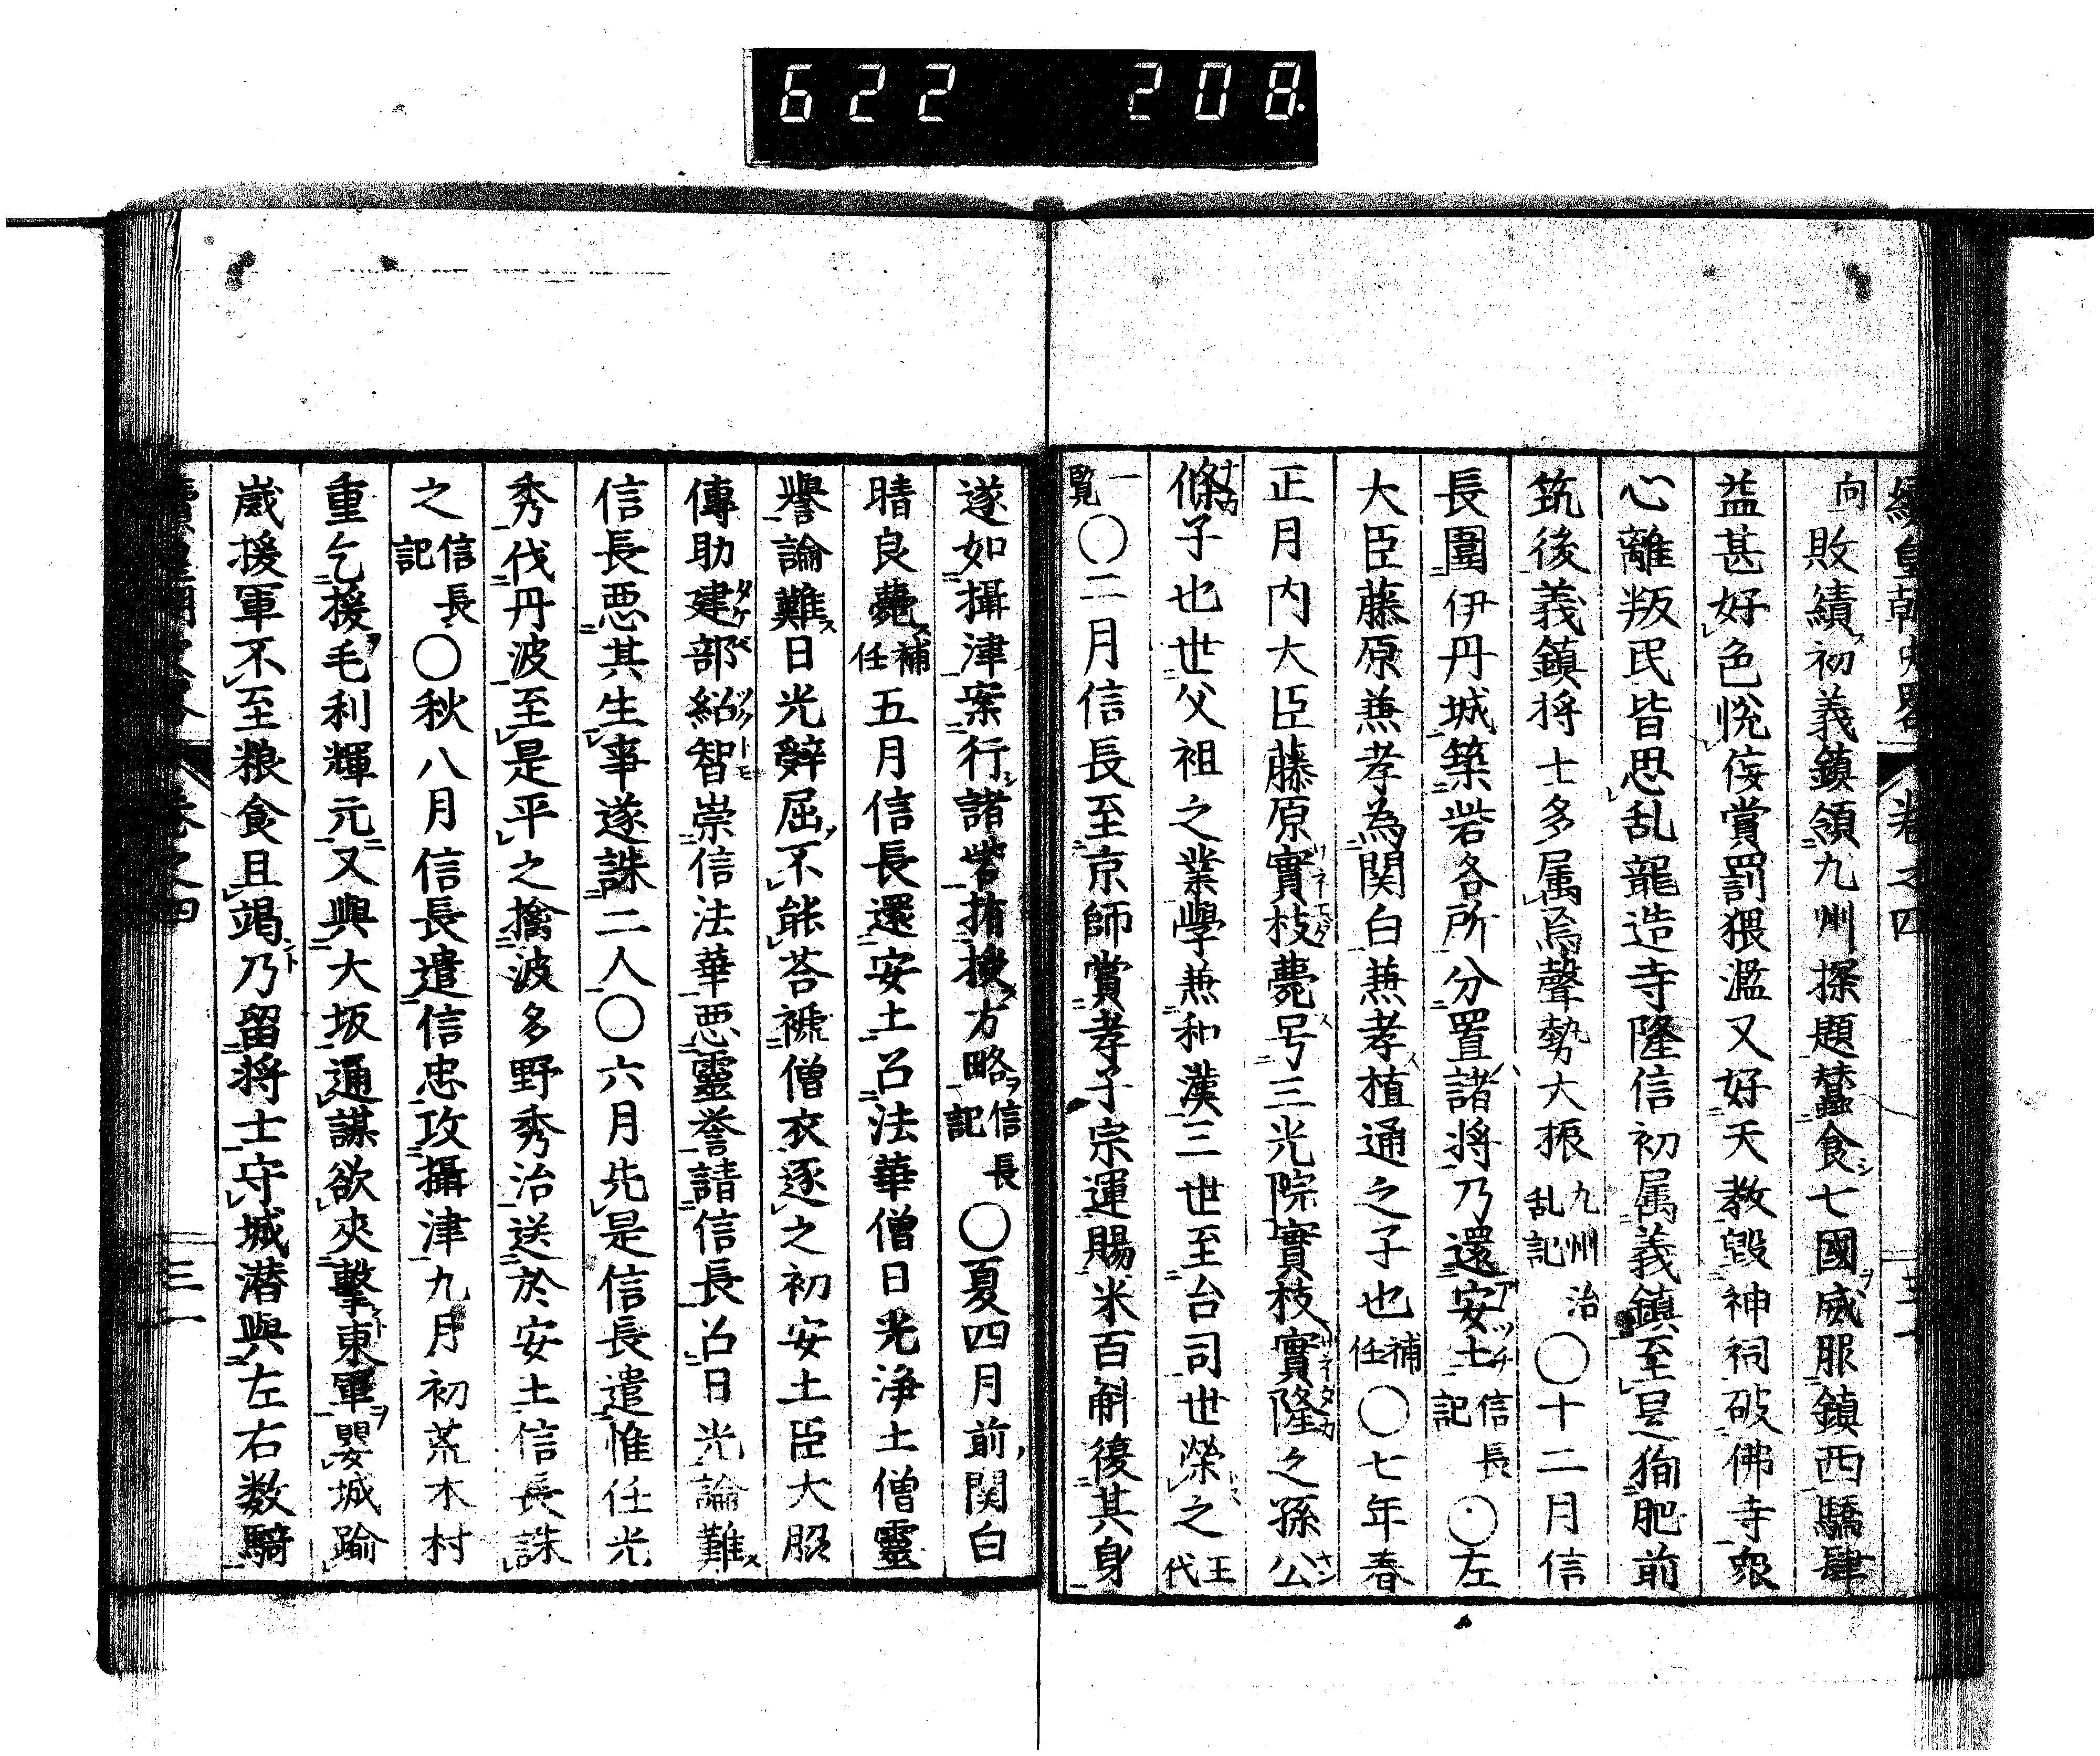 622 208
續皇朝史畧 卷之四
向敗績初義鎮領九州探題蠶食七國威服鎮西驕肆
益甚好色悅侫賞罰猥濫又好天教毀神祠破佛寺衆
心離叛民皆思乱龍造寺隆信初属義鎮至是徇肥前
筑後義鎮将士多属焉聲勢大振九州治乱記〇十二月信
長圍伊丹城築砦各所分置諸将乃還安土信長記〇左
大臣藤原兼孝為関白兼孝植通之子也補任〇七年春
正月内大臣藤原實枝薨号三光院實枝實隆之孫公
條子也世父祖之業學兼和漢三世至台司世榮之王代
一覧〇二月信長至京師賞孝子宗運賜米百斛復其身
遂如攝津案行諸砦指授方略信長記〇夏四月前関白
晴良薨補任五月信長還安土召法華僧日光浄土僧靈
譽論難日光辭屈不能荅褫僧衣逐之初安土臣大脇
傳助建部紹智崇信法華悪靈誉請信長召日光論難
信長悪其生事遂誅二人〇六月先是信長遣惟任光
秀伐丹波至是平之擒波多野秀治送於安土信長誅
之信長記〇秋八月信長遣信忠攻攝津九月初荒木村
重乞援毛利輝元又與大坂通謀欲夾撃東軍嬰城踰
歳援軍不至粮食且竭乃留将士守城潜與左右数騎
三一